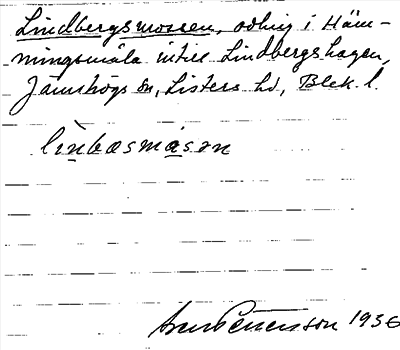 Lindbergsmossen, odling i Häm-
mingsmåla intill Lindbergshagen,
Jämshögs sn, Listers hd, Blek. l.
linbæsmåsən
Pettersson 1936